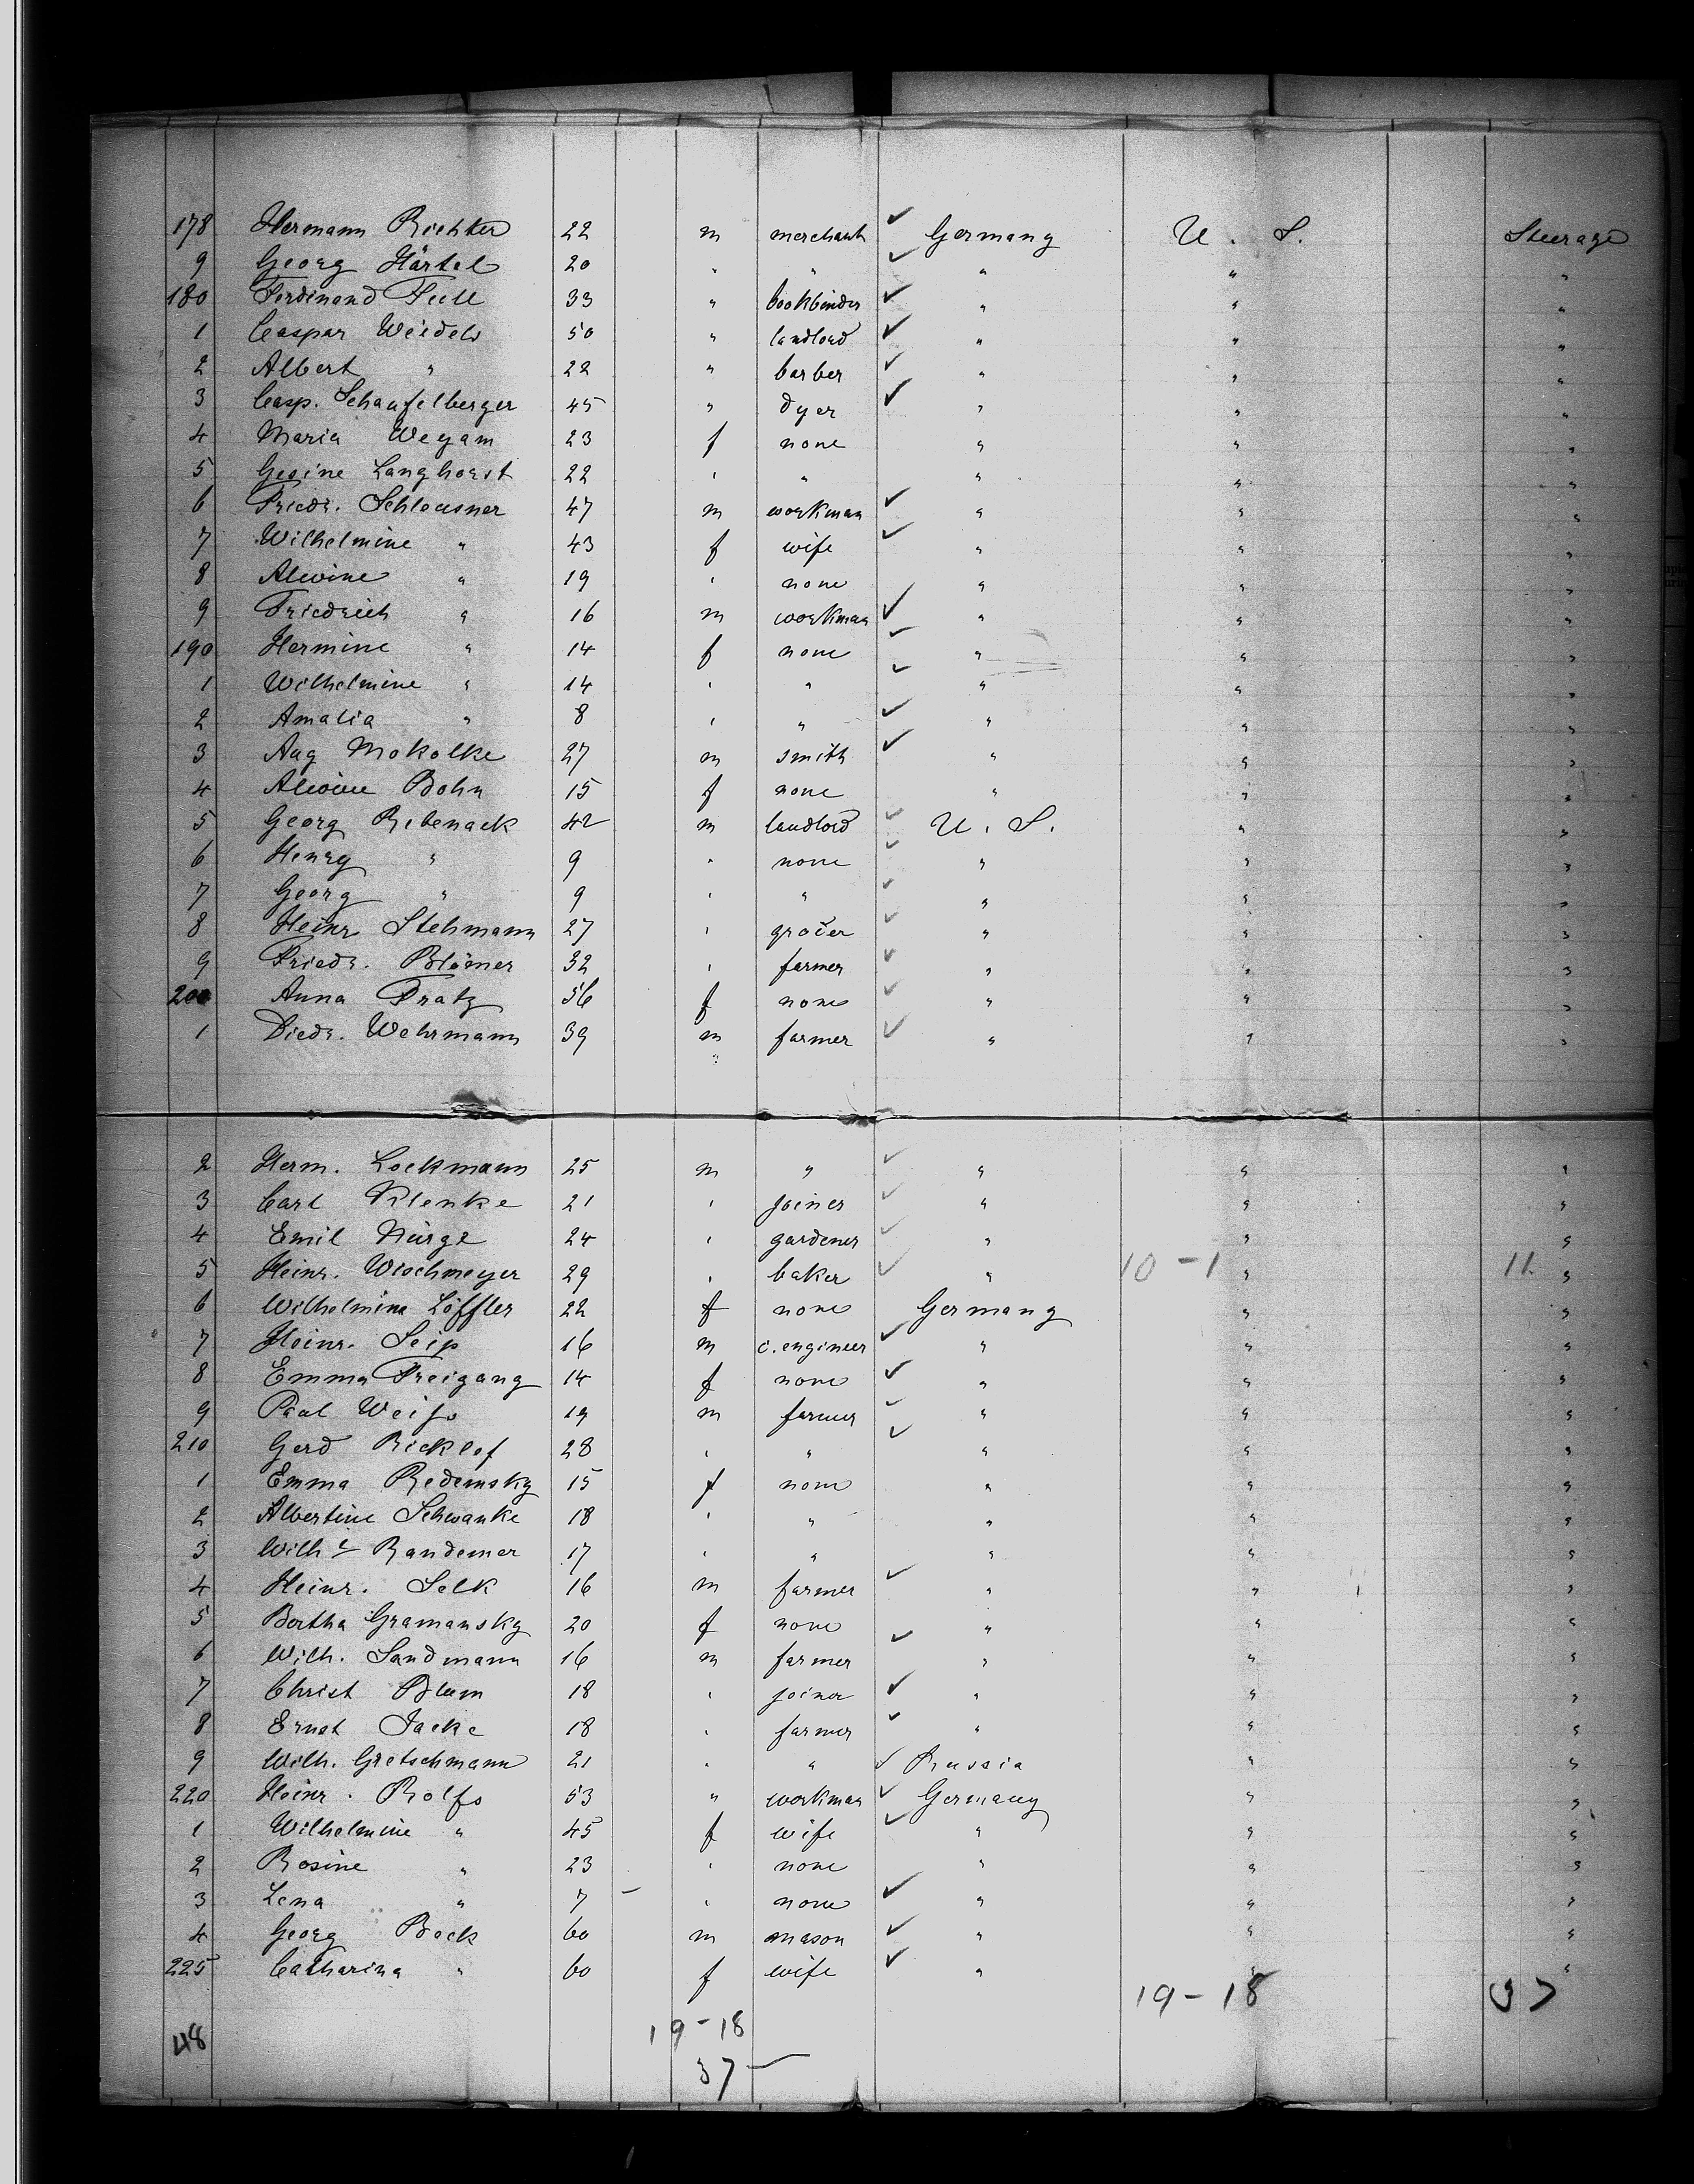 178 Hermann Richter 22 m merchant ✓ Germany U. S. Steerage
9 Georg Härtel 20 " " ✓ " " "
180 Ferdinand Full 33 " bookbinder ✓ " " "
1 Caspar Weidels 50 " landlord ✓ " " "
2 Albert " 22 " barber ✓ " " "
3 Casp. Schaufelberger 45 " dyer ✓ " " "
4 Maria Wegam 23 f none " " "
5 Gesine Langhorst 22 " " " " "
6 Friedr. Schleusner 47 m workman ✓ " " "
7 Wilhelmine " 43 f wife ✓ " " "
8 Alwine " 19 " none " " "
9 Friedrich " 16 m workman ✓ " " "
190 Hermine " 14 f none ✓ " " "
1 Wilhelmine " 14 " " ✓ " " "
2 Amalia " 8 " " ✓ " " "
3 Aug Mokolke 27 m smith ✓ " " "
4 Alwine Bohn 15 f none " " "
5 Georg Rebenack 42 m landlord ✓ U. S. " "
6 Henry " 9 " none ✓ " " "
7 Georg " 9 " " ✓ " " "
8 Heinr Stehmann 27 " grocer ✓ " " "
9 Friedr. Blömer 32 " farmer ✓ " " "
200 Anna Fratz 56 f none ✓ " " "
1 Diedr. Wehrmann 39 m farmer ✓ " " "
2 Herm. Lockmann 25 m " ✓ " " "
3 Carl Klenke 21 " joiner ✓ " " "
4 Emil Nürge 24 " gardener ✓ " " "
5 Heinr. Wischmeyer 29 " baker ✓ " 10-1 " 11. "
6 Wilhelmine Löffler 22 f none Germany " "
7 Heinr. Seip 16 m c. engineer ✓ " " "
8 Emma Freigang 14 f none ✓ " " "
9 Paul Weiss 19 m farmer ✓ " " "
210 Gerd Ricklef 28 " " ✓ " " "
1 Emma Redemsky 15 f none " " "
2 Albertine Schwanke 18 " " " " "
3 Wilhe Randemer 17 " " " " "
4 Heinr. Selk 16 m farmer ✓ " " "
5 Bertha Gramansky 20 f none " " "
6 Wilh. Sandmann 16 m farmer ✓ " " "
7 Christ Blum 18 " joiner ✓ " " "
8 Ernst Jacke 18 " farmer ✓ " " "
9 Wilh. Gretschmann 21 " " ✓ Russia " "
220 Heinr. Rolfs 53 " workman ✓ Germany " "
1 Wilhelmine " 45 f wife ✓ " " "
2 Rosine " 23 " none " " "
3 Lena " 7 – " none ✓ " " "
4 Georg Bock 60 m mason ✓ " " "
225 Catharina " 60 f wife ✓ " " "
19-18 37
48 19-18
37 —